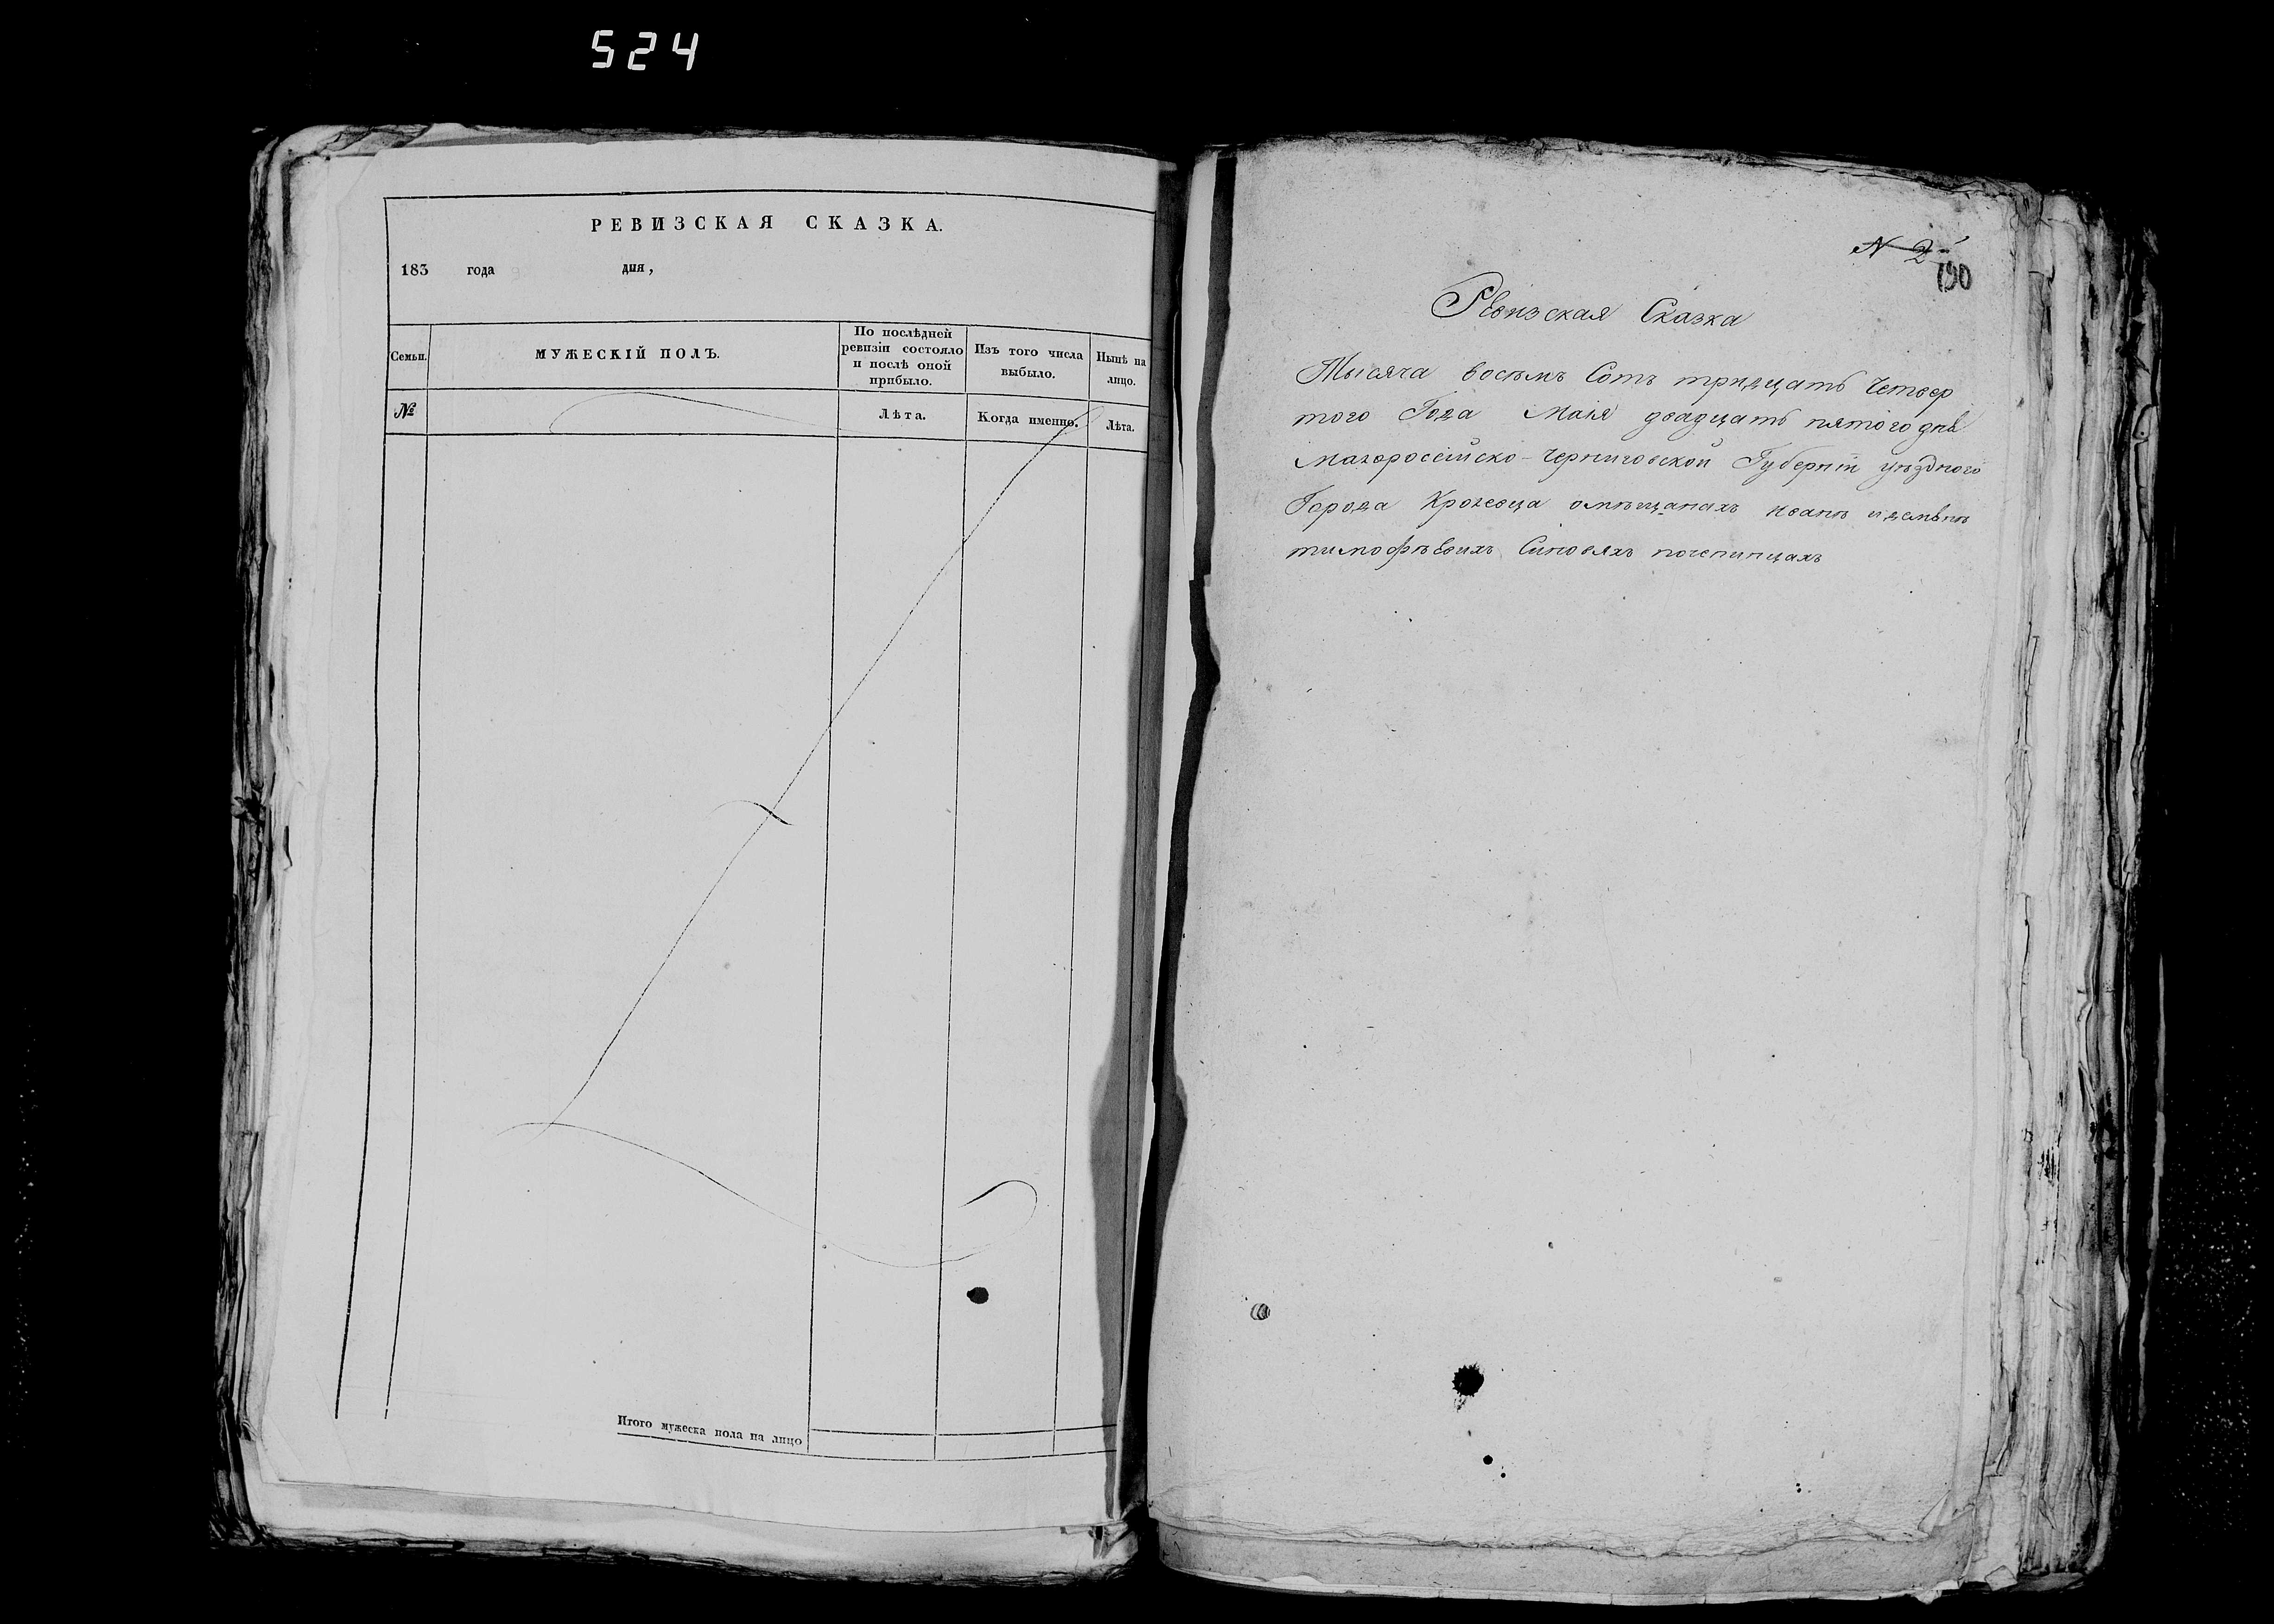 524
РЕВИЗСКАЯ СКАЗКА.
183 года дня,
Семьи.
МУЖЕСКІЙ ПОЛЪ.
По послѣдней
ревизіи состояло
и послѣ оной
прибыло.
Изъ того числа
выбыло.
Нынѣ на
лицо.
№
Лѣта.
Когда именно.
Лѣта.
Итого мужеска пола на лицо
N 2
190
Ревизская Сказка
Тысяча восемъ Сотъ тридцать Четвер
того Года Маія двадцать пятого дня
Малороссійско-Черниговской Губерніи уѣздного
Города Кролевца омѣщанахъ иванѣ идемьнѣ
тимофѣевихъ Синовяхъ почепинцахъ